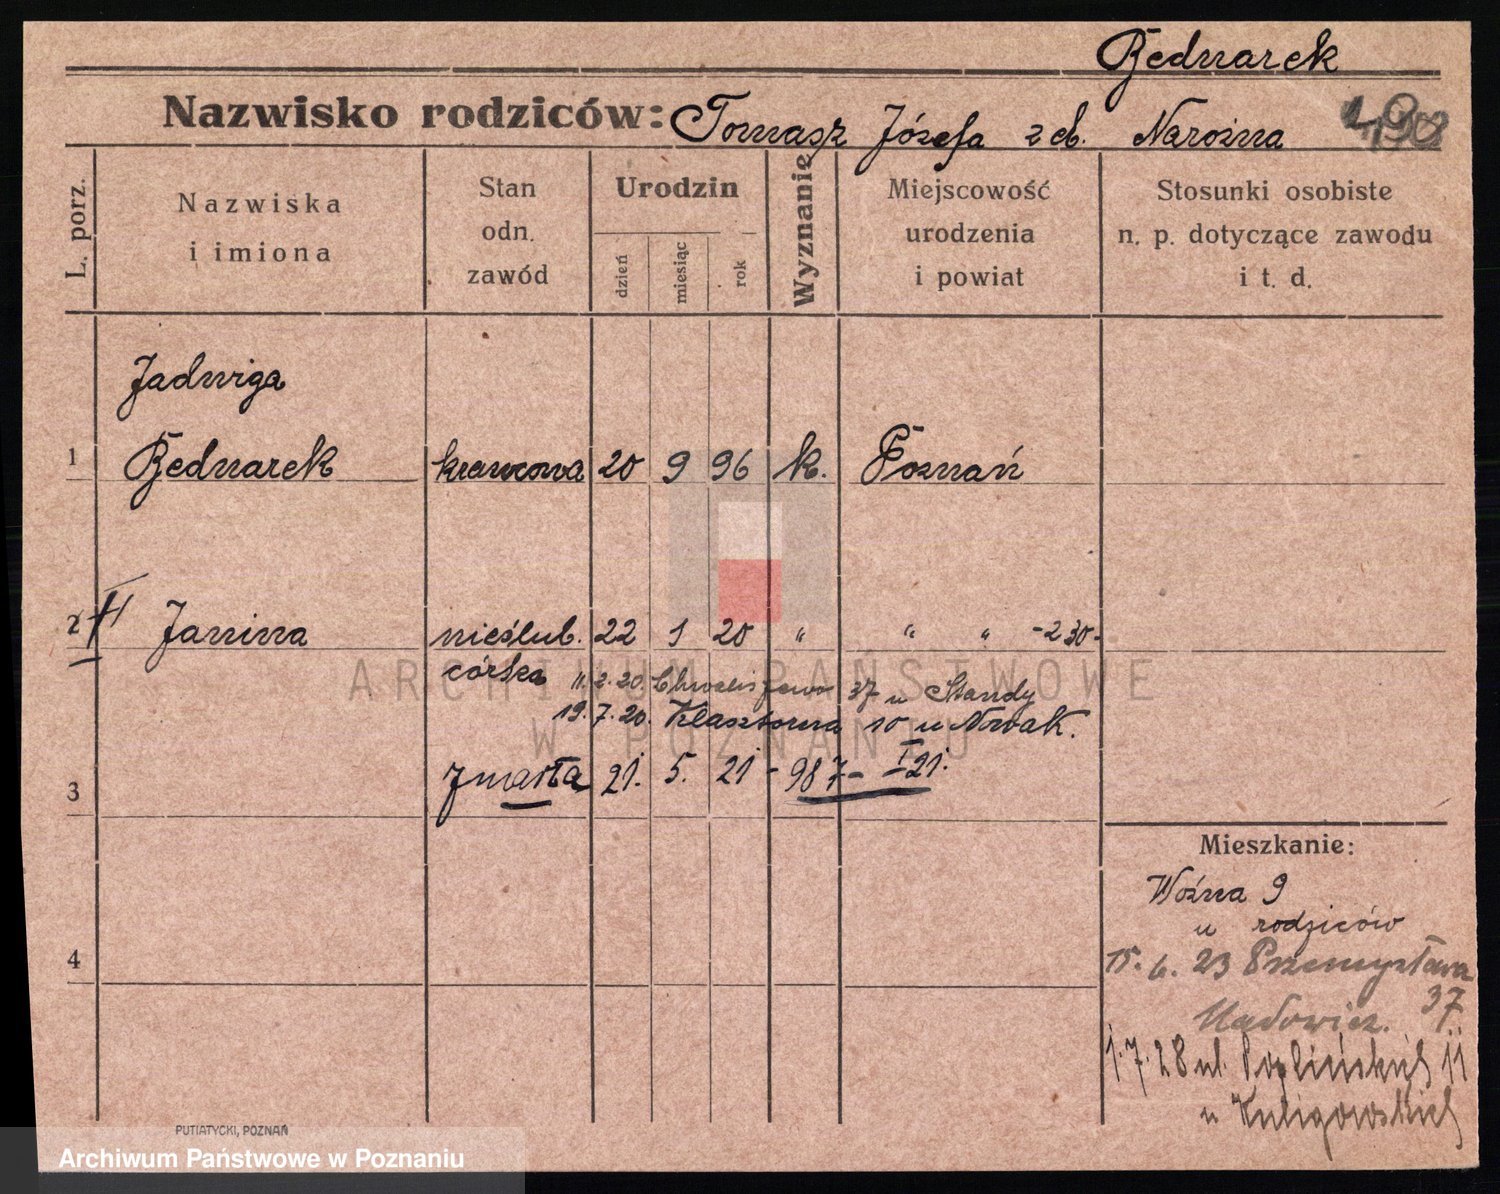 Bednarek
Nazwisko rodziców: Tomasz Józefa z d. Narożna
L. porz.
Nazwiska
i imiona
Stan
odn.
zawód
Urodzin
dzień
miesiąc
rok
Wyznanie
Miejscowość
urodzenia
i powiat
Stosunki osobiste
n. p. dotyczące zawodu
i t. d.
Jadwiga
1 Bednarek krawcowa 20 9 96 k. Poznań
2 Janina nieślub. 22 1 20 " " " -230-
córka 11.2.20 Chwaliszewo 37 u Standy
19.7.20. Klasztorna 10 u Nowak.
3 zmarła 21. 5. 21 - 987- I 21.
Mieszkanie:
Woźna 9
u rodziców
4
15. 6. 23 Przemysława
37
1.7.28 ul. 11
u Kuligowskich
PUTIATYCKI, POZNAŃ
ARCHIWUM PAŃSTWOWE
W POZNANIU
Archiwum Państwowe w Poznaniu